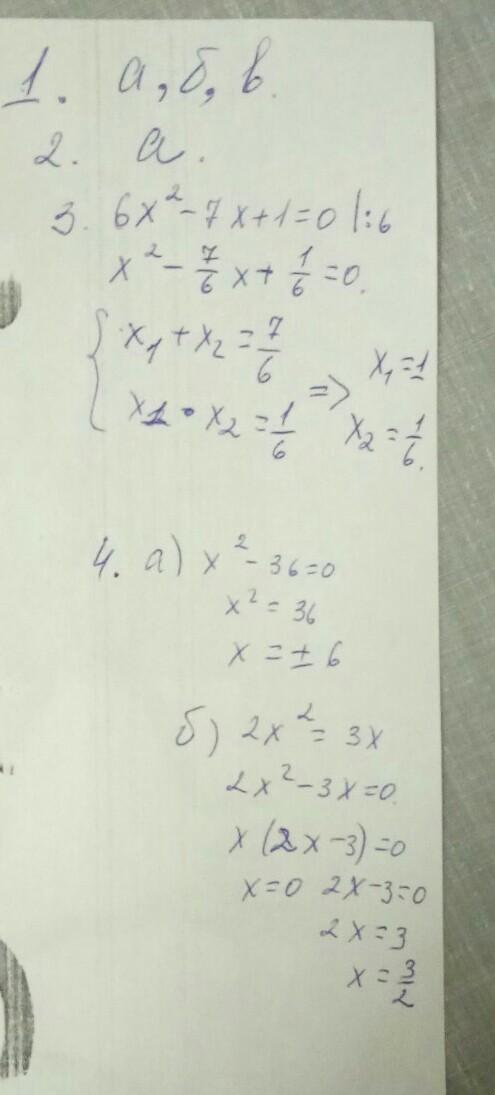 1. а, б, в.
2. а.
3. 6x² - 7x + 1 = 0 |:6
x² - 7/6 x + 1/6 = 0.
{ x₁ + x₂ = 7/6
x₁ • x₂ = 1/6 => x₁ = 1
x₂ = 1/6.
4. а) x² - 36 = 0
x² = 36
x = ± 6
б) 2x² = 3x
2x² - 3x = 0.
x (2x - 3) = 0
x = 0 2x - 3 = 0
2x = 3
x = 3/2